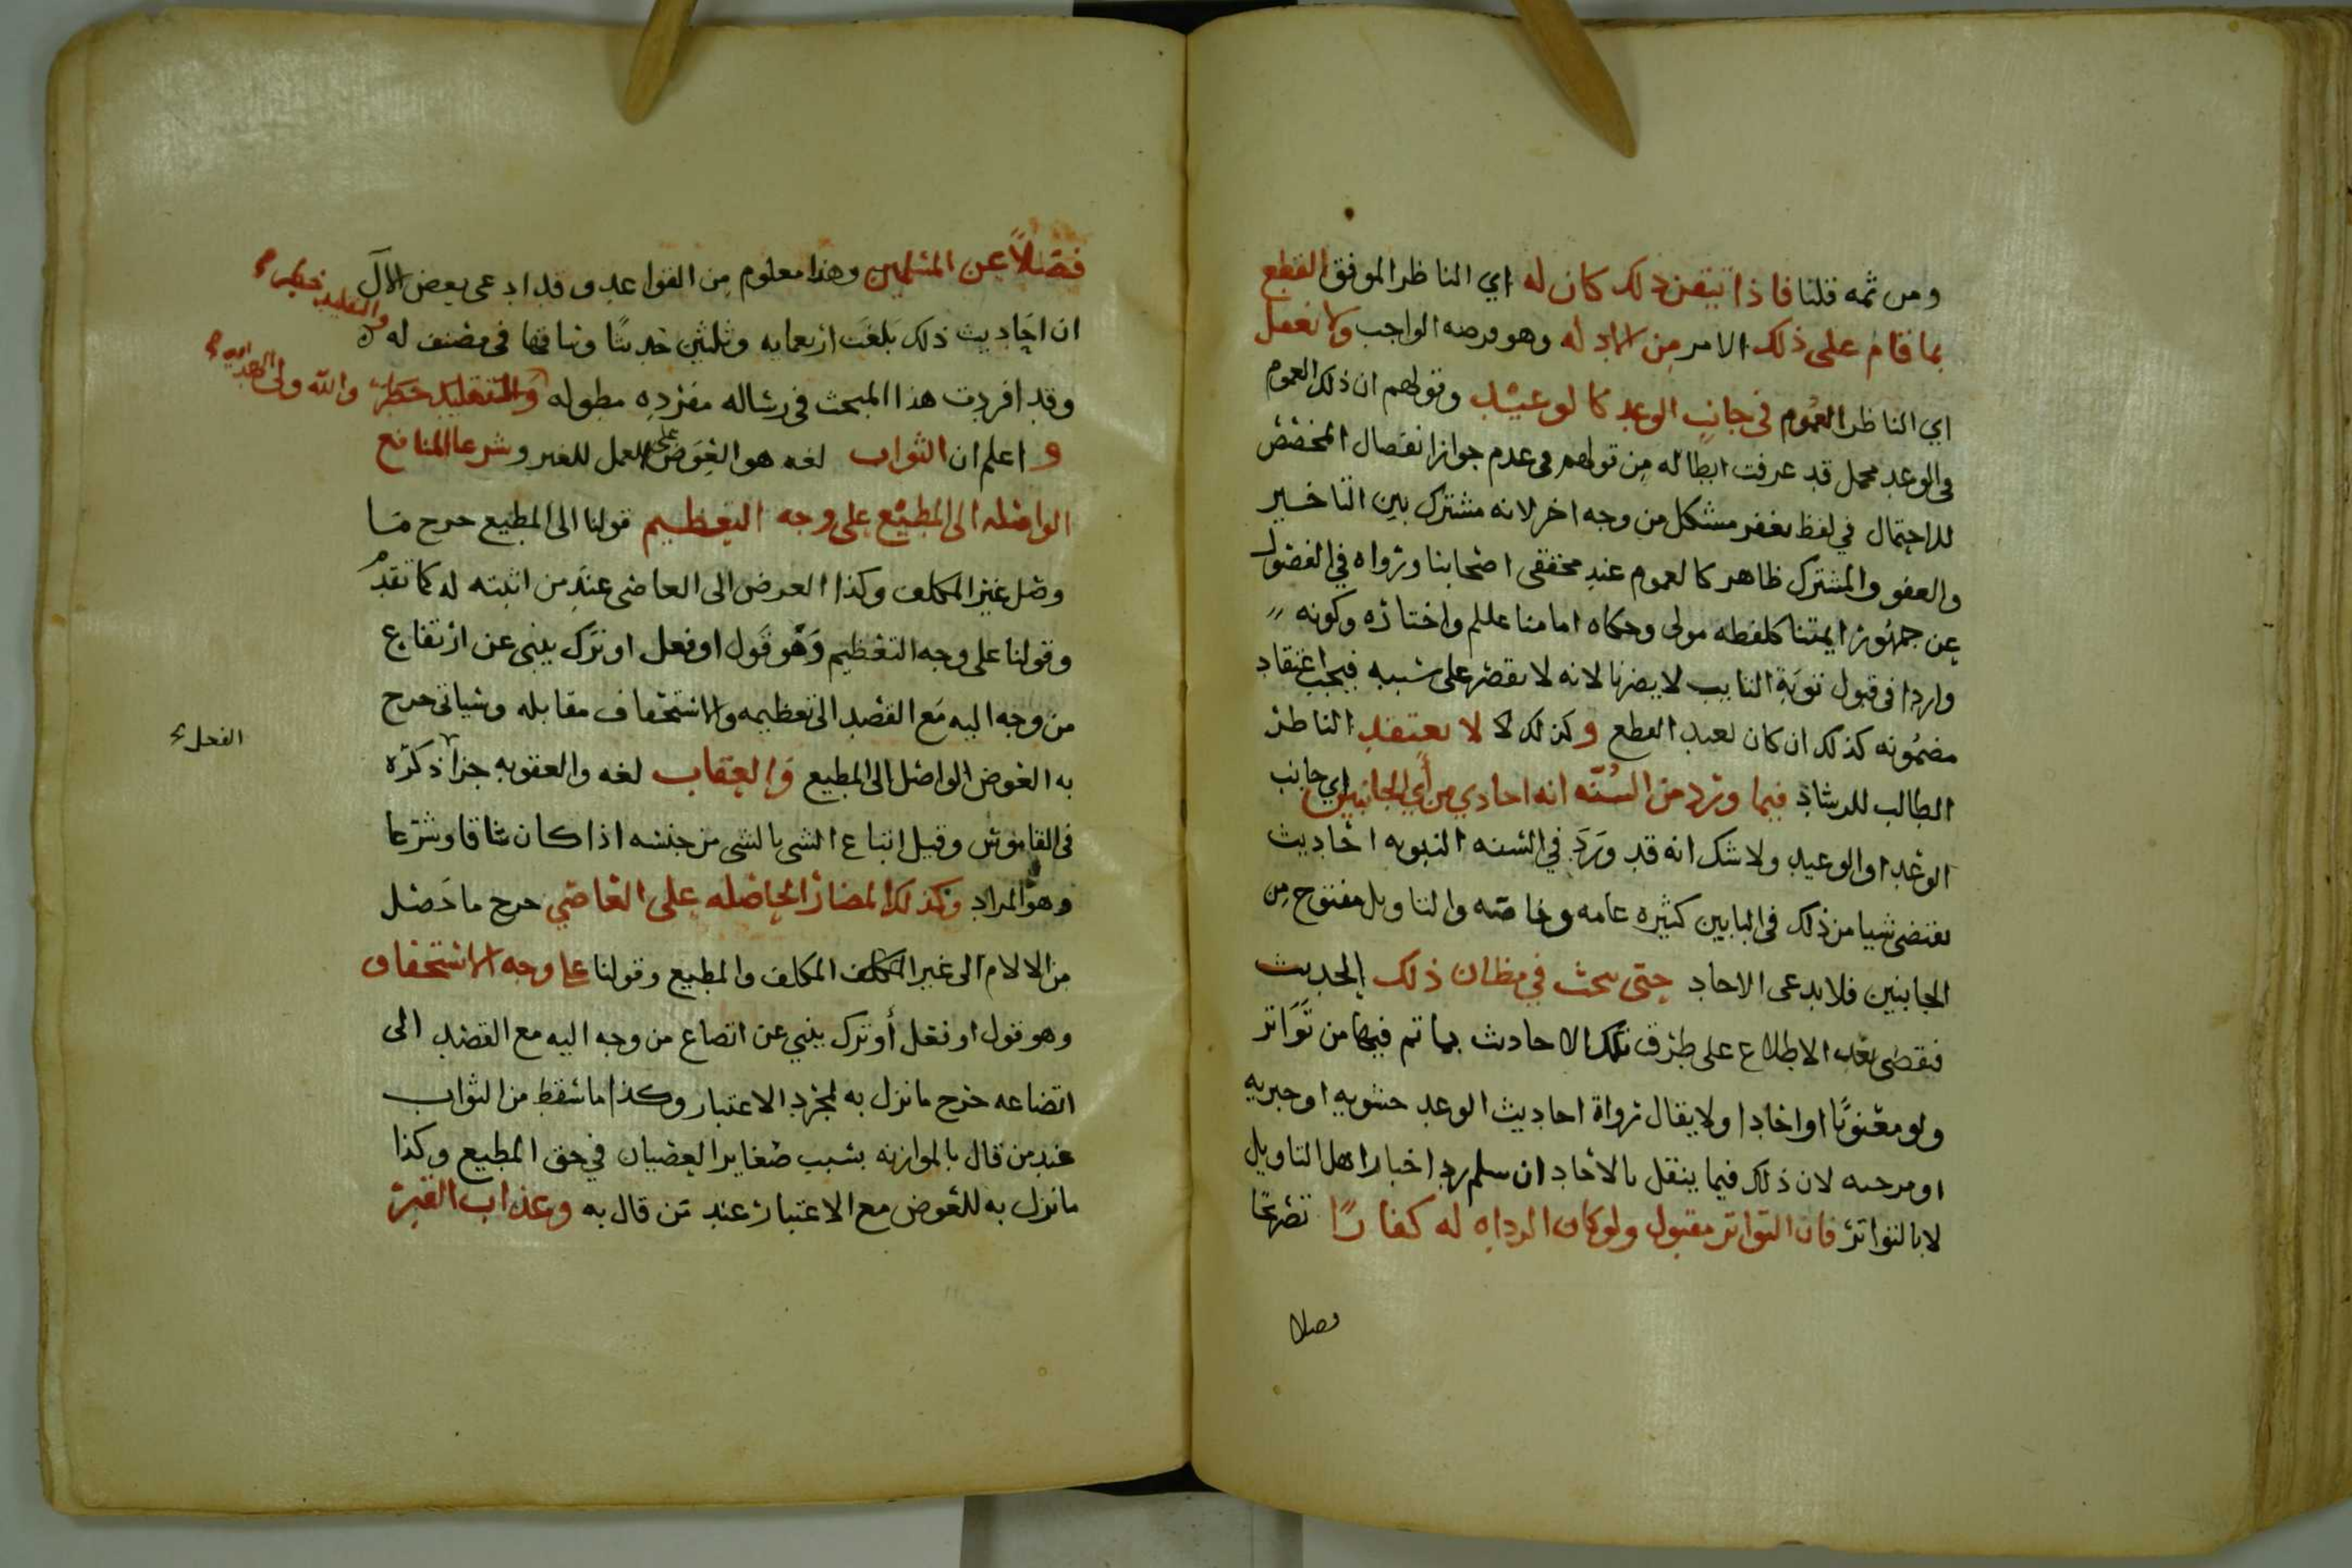 ومن ثمه قلنا فاذا تيقن ذلك كان له اي الناظر الموفق القطع
بما قام على ذلك الامر من الادله وهو فرضه الواجب ولا يغفل
اي الناظر العموم في جانب الوعد كالوعيد وقولهم ان ذلك العموم
في الوعد مجمل قد عرفت ابطاله من قولهم في عدم جواز انفصال المخصص
للاحتمال في لفظ يغفر مشكل من وجه اخر لانه مشترك بين التاخير
والعفو والمشترك ظاهر كالعموم عند محققي اصحابنا ورواه في الفصول
عن جمهور ايمتنا كلفظه مولى وحكاه امامنا علم واختاره وكونه
واردا في قبول توبة التايب لا يضرنا لانه لا يقصر على سببه فيجب اعتقاد
مضمونه كذلك ان كان لعبد القطع وكذلك لا لا يعتقد الناظر
الطالب للرشاد فيما ورد من السنه انه احادي من أي الجانبين اي جانب
الوعد او الوعيد ولا شك انه قد ورد في السنه النبويه احاديث
تقتضي شيا من ذلك في البابين كثيره عامه وخاصه والتاويل مفتوح من
الجانبين فلا يدعى الاحاد حتى يبحث في مظان ذلك الحديث
فيقضي بعد الاطلاع على طرق تلك الاحاديث بما تم فيها من تواتر
ولو معنويا او احادا ولا يقال رواة احاديث الوعد حشويه او جبريه
او مرجيه لان ذلك فيما ينقل بالاحاد ان سلم رد اخبار اهل التاويل
لا بالتواتر فان التواتر مقبول ولو كان الرواه له كفارا تصريحا
فضلا
فضلا عن المسلمين وهذا معلوم من القواعد وقد ادعى بعض الآل
ان احاديث ذلك بلغت اربعمايه وثلثين حديثا وساقها في مصنف له
وقد افردت هذا المبحث في رساله مفرده مطوله والتقليد خطر والله ولي الهدايه
والتقليد خطر
و اعلم ان الثواب لغه هو العوض على العمل للغير وشرعا المنافع
الواصله الى المطيع على وجه التعظيم قولنا الى المطيع خرج ما
وصل غير المكلف وكذا العوض الى العاصي عند من اثبته له كما تقدم
وقولنا على وجه التعظيم وهو قول او فعل او ترك ينبي عن ارتفاع
من وجه اليه مع القصد الى تعظيمه والاستخفاف مقابله وسياتي خرج
به العوض الواصل الى المطيع والعقاب لغه والعقوبه جزا ذكره
الفعل
في القاموس وقيل اتباع الشي بالشي من جنسه اذا كان شاقا وشرعا
وهو المراد وكذلك المضار الحاصله على العاصي خرج ما حصل
من الالام الى غير المكلف المكلف والمطيع وقولنا على وجه الاستخفاف
وهو قول او فعل أو ترك ينبي عن اتضاع من وجه اليه مع القصد الى
اتضاعه خرج ما نزل به لمجرد الاعتبار وكذا ما سقط من الثواب
عند من قال بالموازنه بسبب صغاير العصيان في حق المطيع وكذا
ما نزل به للعوض مع الاعتبار عند من قال به وعذاب القبر